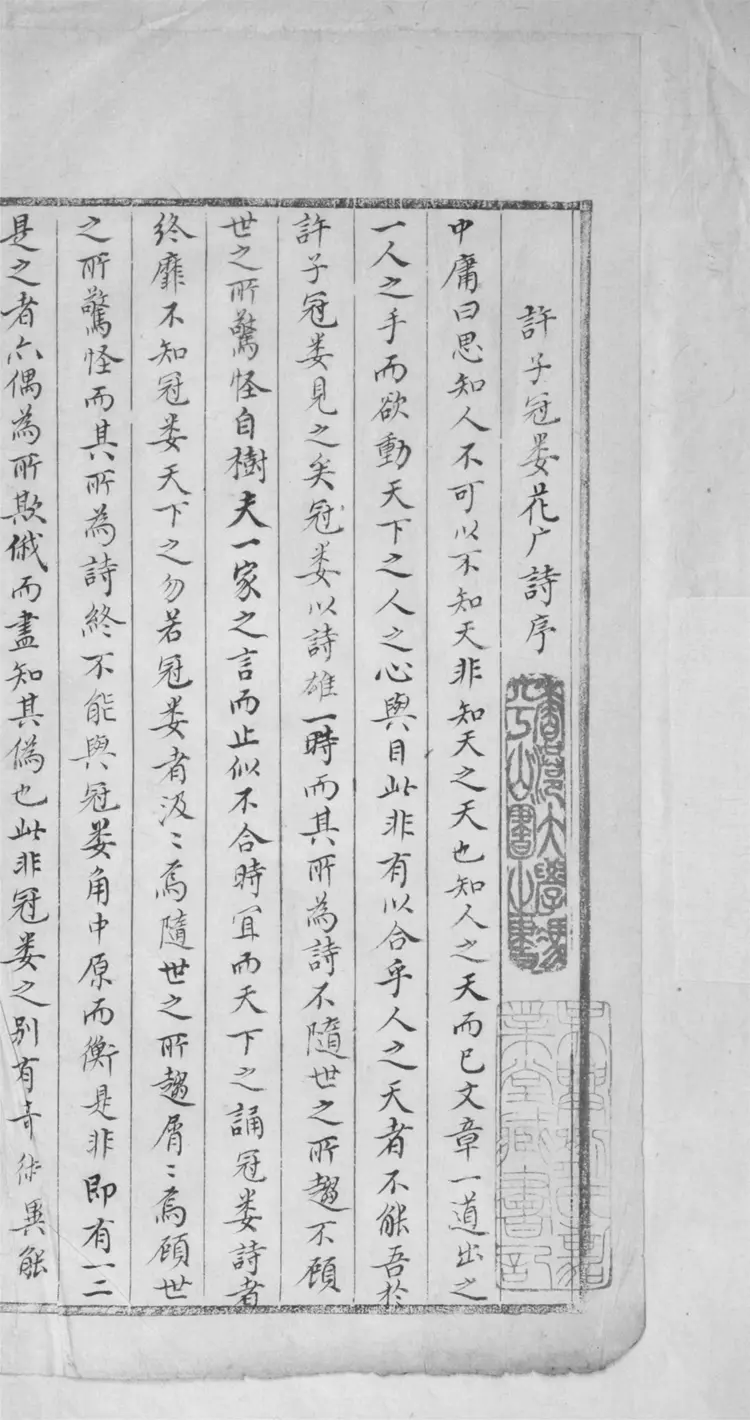 許子冠娄花广詩序
中庸曰思知人不可以不知天非知天之天也知人之天而已文章一道出之
一人之手而欲動天下之人之心與目此非有以合乎人之天者不能吾於
許子冠娄見之矣冠娄以詩雄一時而其所為詩不隨世之所趨不顧
世之所驚怪自樹夫一家之言而止似不合時宜而天下之誦冠娄詩者
終靡不知冠娄天下之勿若冠娄者汲〻焉隨世之所趨屑〻焉顧世
之所驚怪而其所為詩終不能與冠娄角中原而衡是非即有一二
是之者亦偶為所欺俄而盡知其偽也此非冠娄之別有奇術異能